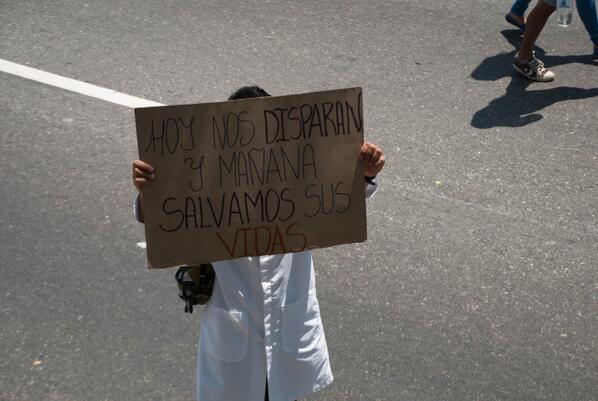 HOY NOS DISPARAN
Y MAÑANA
SALVAMOS SUS
VIDAS.